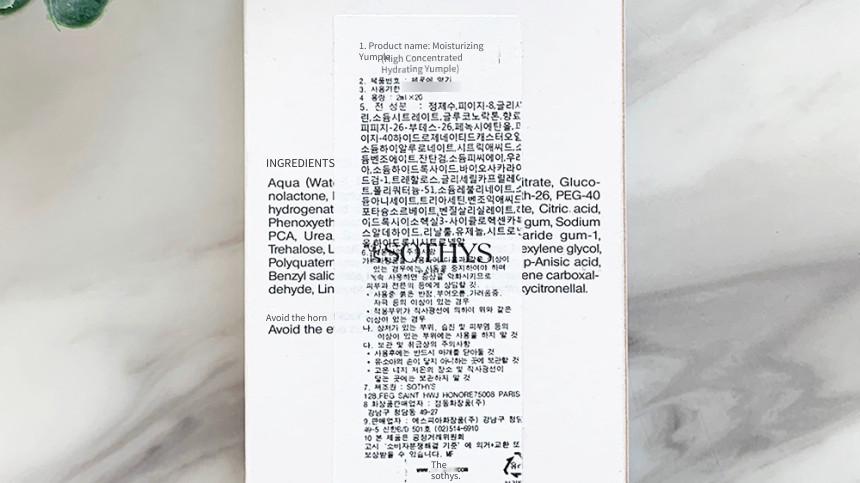 1. Product name: Moisturizing
Yumple
(High Concentrated
Hydrating Yumple)
2. 제품번호 : 제품에 명기
3. 사용기한
4 용량 : 2ml×20
5. 전 성분 : 정제수,피이지-8,글리
린,소듐시트레이트,글루코노락톤,향료
피피지-26-부데스-26,페녹시에탄올,
이지-40하이드로제네이티드캐스터오일
소듐하이알루로네이트,시트릭애씨드,
듐벤조에이트,잔탄검,소듐피씨에이,우
아,소듐하이드록사이드,바이오사카라이
드검-1,트레할로스,글리세릴카프릴레
트,폴리쿼터늄-51,소듐레불리네이트,
듐아니세이트,트리아세틴,벤조익애씨드
포타슘소르베이트,벤질살리실레이트,
이드록시이소헥실3-사이클로헥센카
스알데하이드,리날룰,유제놀,시트로
올,하이드록시시트로넬알
INGREDIENTS
Aqua (Wate
itrate, Gluco-
nolactone,
th-26, PEG-40
hydrogenat
te, Citric acid,
Phenoxyeth
gum, Sodium
PCA, Urea,
aride gum-1,
Trehalose, L
exylene glycol,
Polyquatern
p-Anisic acid,
Benzyl salic
ene carboxal-
dehyde, Lin
xycitronellal.
SOTHYS
있는 경우에는 사용을 중지하여야 하며
계속 사용하면 증상을 악화시키므로
피부과 전문의 등에게 상담할 것.
• 사용중 붉은 반점,부어오름,가려움증,
자극 등의 이상이 있는 경우
• 적용부위가 직사광선에 의하여 위와 같은
이상이 있는 경우
나. 상처가 있는 부위, 습진 및 피부염 등의
이상이 있는 부위에는 사용을 하지 말 것
다. 보관 및 취급상의 주의사항
• 사용후에는 반드시 마개를 닫아둘 것
• 유·소아의 손이 닿지 아니하는 곳에 보관할 것
• 고온 내지 저온의 장소 및 직사광선이
닿는 곳에는 보관하지 말 것
Avoid the horn
Avoid the e
7. 제조원 : SOTHYS
128,FBG SAINT HWJ HONORE75008 PARIS
8 화장품판매업자 : 정동화장품(주)
강남구 청담동 49-27
9.판매업자 : 에스피아화장품(주) 강남구 청담
49-5 신한B/D 501호 (02)514-6910
10 본 제품은 공정거래위원회
고시 '소비자분쟁해결 기준' 에 의거·교환 또
보상받을 수 있습니다.
www.
The
sothys.